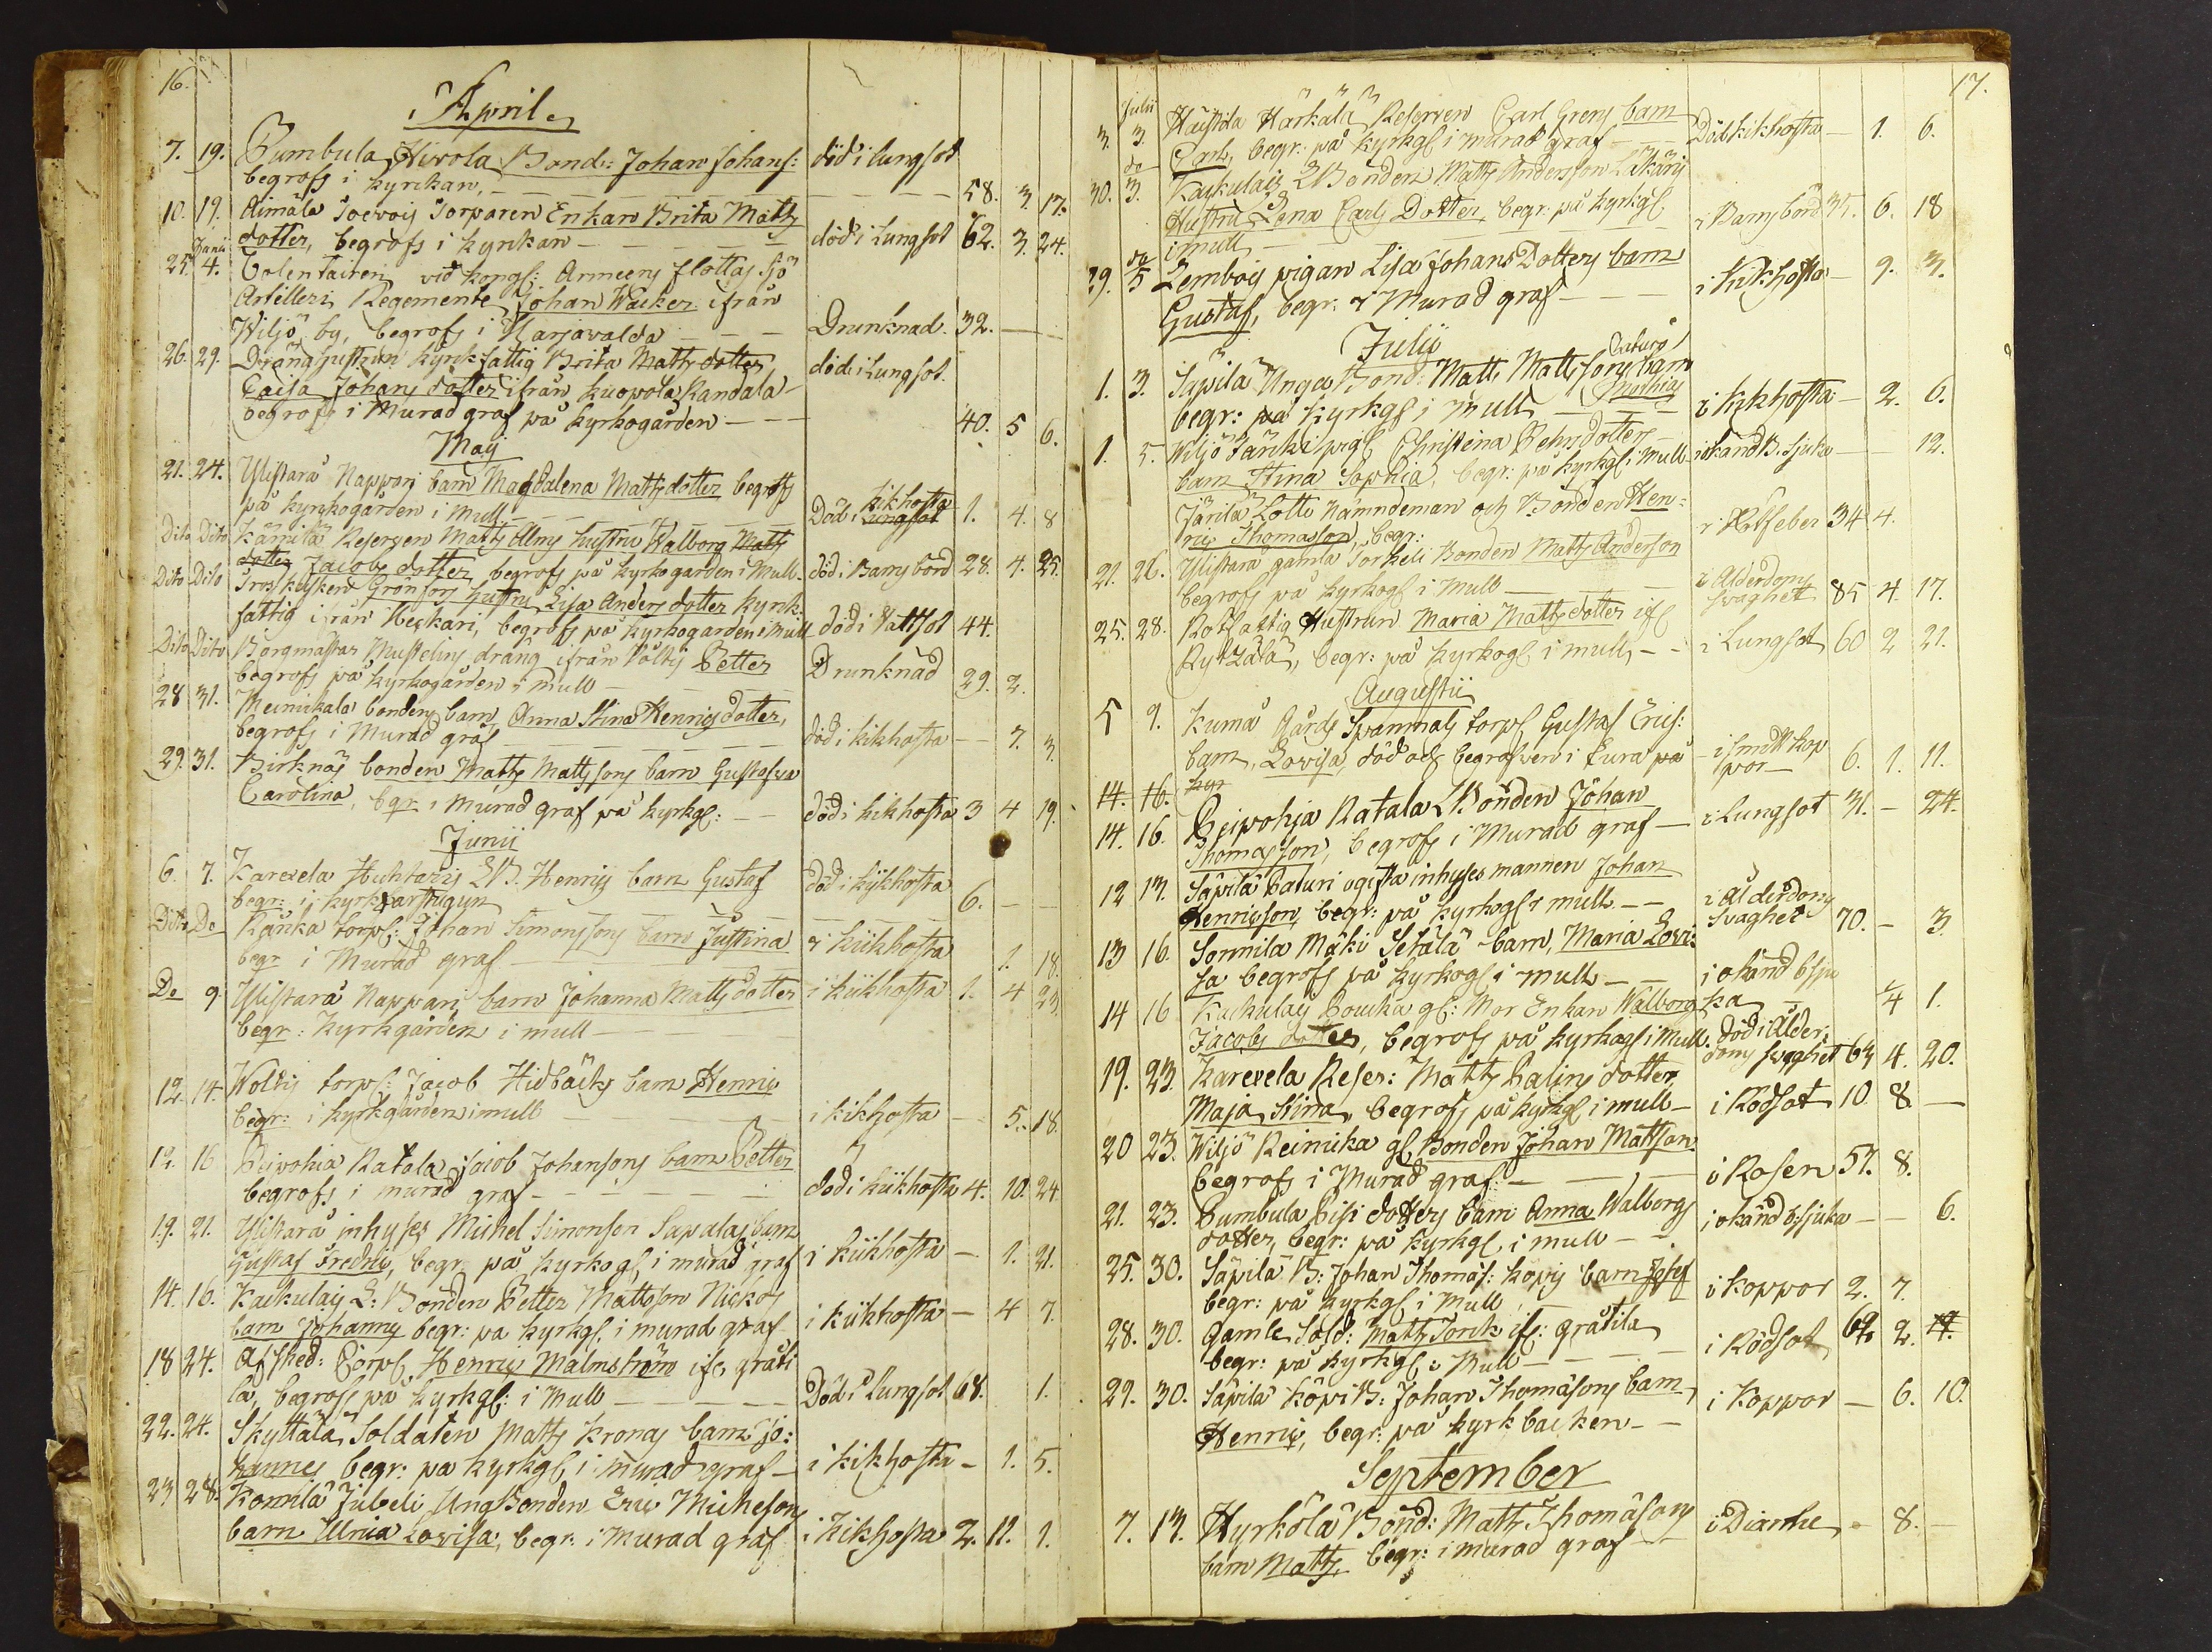 16.
April
7. 19. Pumbula Hirola Bond: Johan Johans: död i lungsot
begrofs i kyrkan. — 58. 3. 17.
10. 19. Aimäla Torparen Enkan Brita Matts
dotter, begrofs i kyrkan — död i Lungsot 62. 3. 24.
Junii
25. 4. Volentairen vid kongl: Armeens flottas Sjö
Artilleri Regemente Johan Wacker ifrån
Wiljö by, begrofs i Harjavalda — Drunknad. 32. —
26. 29. Dränghustrun kyrkfattig Brita Matts dotter död i Lungsot.
Caisa Johans dotter ifrån Kuopola Randala
begrofs i Murad graf på kyrkogården — 40. 5 6.
Maij
21. 24. Ylistarå Nappari barn Magdalena Mattsdotter begrofs
på kyrkogården i Mull — Död i Lungsot kikhosta 1. 4. 8
Dito Dito Kännilä Reserven Matts hustru Walborg Matts
dotter Jacobs dotter begrofs på kyrkogården i Mull. död i Barnsbörd 28. 4. 25.
Dito Dito Grönfors hustru Lisa Anders dotter kyrk
fattig ifrån Heskari, begrofs på kyrkogården i Mull död i Vattsot 44.
Dito Dito Borgmästar Mustelins dräng ifrån Petter
begrofs på kyrkogården i mull Drunknad 29. 2.
28 31. Meinikala bondens barn Anna Stina Henrics dotter,
begrofs i Murad graf död i kikhosta — 7. 3.
29. 31. Birknäs bonden Matts Mattssons barn Gustafva
Carolina, begr. i Murad graf på kyrkg: — död i kikhosta 3 4 19.
Junii
6. 7. Karexela Huhtaris B. Henrics barn Gustaf död i kikhosta
begr: i kyrk 6. —
Dito Do Känka torp: Johan Simonssons barn Justina i kikhosta
begr i Murad graf 1. 18.
Do 9. Ylistarå Nappari barn Johanna Mattsdotter i kikhosta 1. 4 23
begr: Kyrkgården i mull —
12. 14. torp: Jacob Hidbäcks barn Henric
begr: i kyrkgården i mull i kikhosta — 5. 18.
12. 16 Peipohia Ratala Jacob Johansons barn Petter
begrofs i murad graf — död i kikhosta 4. 10. 24
19. 21. Ylistarå inhyses Michel Simonson Sapalas barn
Gustaf Fredric, begr. på kyrkog: i murad graf i kikhosta — 1. 21.
14. 16. Kaukulais L: Bonden Petter Mattsson
barn Johannes begr: på kyrkg: i murad graf i kikhosta — 4 7.
18 24. Afsked: Corpl Henric Malmström ifr gråti
la, begrofs på kyrkg: i Mull — Död i Lungsot 68. 1.
22. 24. Skyttälä Soldaten Matts Kronas barn Jo:
hannes begr: på kyrkg: i murad graf — i kikhosta — 1. 5.
23 28. Komila Jubeli Ung Bonden Eric Michelsons
barn Ulrica Lovisa, begr: i Murad graf i kikhosta 2. 11. 1.
17.
Julii
3. 3. Haistila Härkälä Reserven Carl Grens barn
Carl, begr: på kyrkg: i murad graf — Död kikhosta — 1. 6.
do
30. 3. Kaukulais Bonden Matts Anderson Läkäris
Hustru Lena Carls Dotter, begr: på kyrkg: i Barnsbörd 35. 6. 18
i mull —
do
29. 5 Lembois pigan Lisa Johans Dotters barn
Gustaf, begr: i Murad graf — i Kikhosta — 9. 3.
Julii
1. 3. Säpilä Unga Bond: Matts Mattssons barn
Mathias
begr: på kyrkg: i mull — i kikhosta — 2. 6.
1. 5. Wiljö Järiki pig: Christina Pehrsdotters
barn Stina Sophia, begr: på kyrkg: i mull i okänd B. sjuka — 12.
Järilä Lotti Nämndeman och Bonden Hen:
ric Thomasson, begr: i Rötfeber 34 4.
21. 26. Ylistarå gamla Torkeli Bonden Matts Anderson
begrofs på kyrkog: i Mull i Ålderdoms
svaghet 85 4. 17.
25. 28. Rotfattig Hustrun Maria Matts dotter ifr
begr: på kyrkog: i mull — i Lungsot 60 2 21.
Augustii
5 9. Kumå Gårds torp: Gustaf Erics:
barn, Lovisa, död och begrafven i Eura på i småkop
por — 6. 1. 11.
14. 16. kyr
14. 16. Peipohja Ratala Bonden Johan
Thomasson, begrofs i Murad graf — i Lungsot 31. — 24.
12 13. Säpilä Caturi ogifta inhyses mannen Johan
Henricson, begr: på kyrkog: i mull — i Ålderdoms
svaghet 70. — 3.
13 16. Sonnila Mäki Setälä barn, Maria Lovi:
sa begrofs på kyrkog: i mull — i okänd bsju
ka — 4 1.
14 16 Kaukulais gl: Mor Enkan Walborg
Jacobs dotter, begrofs på kyrkog: i Mull. död i Ålder:
doms svaghet 63 4. 20.
19. 23. Karexela Reser: Matts Palins dotter
Maja Stina, begrofs på kyrkg: i mull — i Rödsot 10. 8. —
20 23. Wiljö Reinicka gl. Bonden Johan Mattson
begrofs i Murad graf — i Rosen 57. 8.
21. 23. Pumbula Pisi dotters barn Anna Walborgs
dotter, begr: på kyrkg: i mull — i okänd b:sjuka — 6.
25. 30. Säpilä B: Johan Thomas: Köpis barn
begr: på kyrkg: i Mull i koppor 2. 7.
28. 30. gamle Sold: Matts Torck ifr: gråtila
begr: på kyrkg: i Mull — i Rödsot 62. 2. 17.
29. 30. Säpilä Köpi B: Johan Thomäsons barn
Henric, begr: på kyrk backen — i Koppor — 6. 10.
September
7. 13. Hyrkölä Bond: Matts Thomäsons i Diarrhe — 8. —
barn Matts begr: i murad graf —